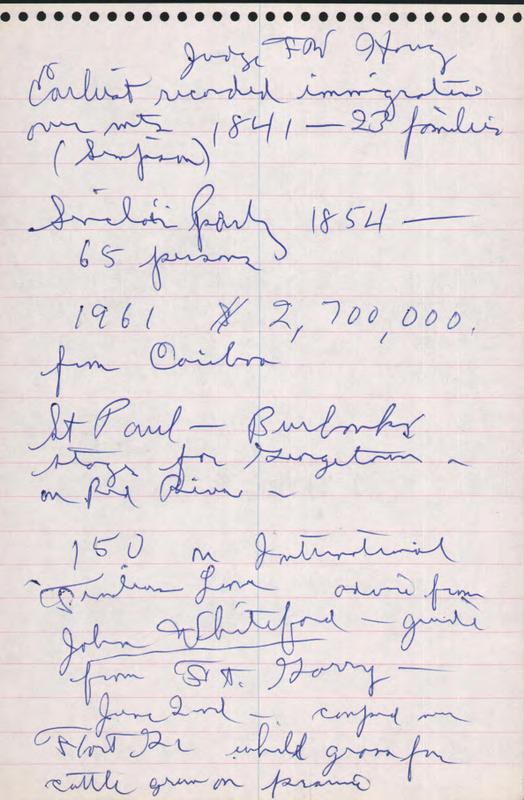 Judge FW Howay
Earliest recorded immigration
over mts 1841 — 23 families
(Simpson)
Sinclair party 1854 —
65 persons
1961 $ 2,700,000.
from Cariboo
St Paul — Burbanks
stage for Georgetown ~
on Red River ~
150 on International
June advice from
John Whiteford — guide
from Ft. Garry —
June 2nd — camped near
Fort Gr while grass for
cattle grew on prairie